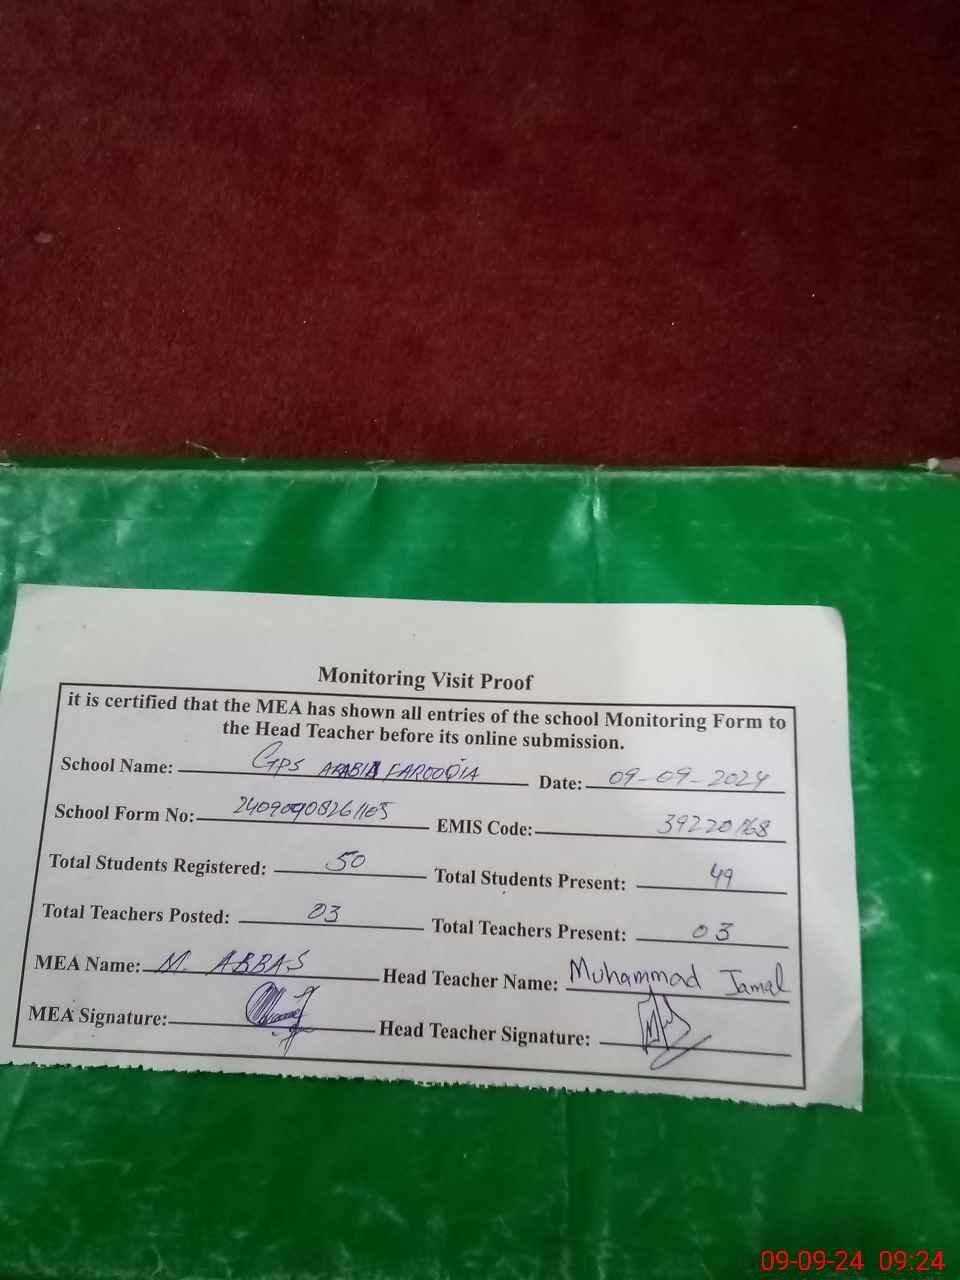 Monitoring Visit Proof
it is certified that the MEA has shown all entries of the school Monitoring Form to
the Head Teacher before its online submission.
School Name: GPS ARABIA FAROOQIA Date: 09-09-2024
School Form No: EMIS Code: 39220168
Total Students Registered: 50 Total Students Present: 49
Total Teachers Posted: 03 Total Teachers Present: 03
MEA Name: M. ABBAS Head Teacher Name: Muhammad Jamal
MEA Signature: Head Teacher Signature:
09-09-24 09:24